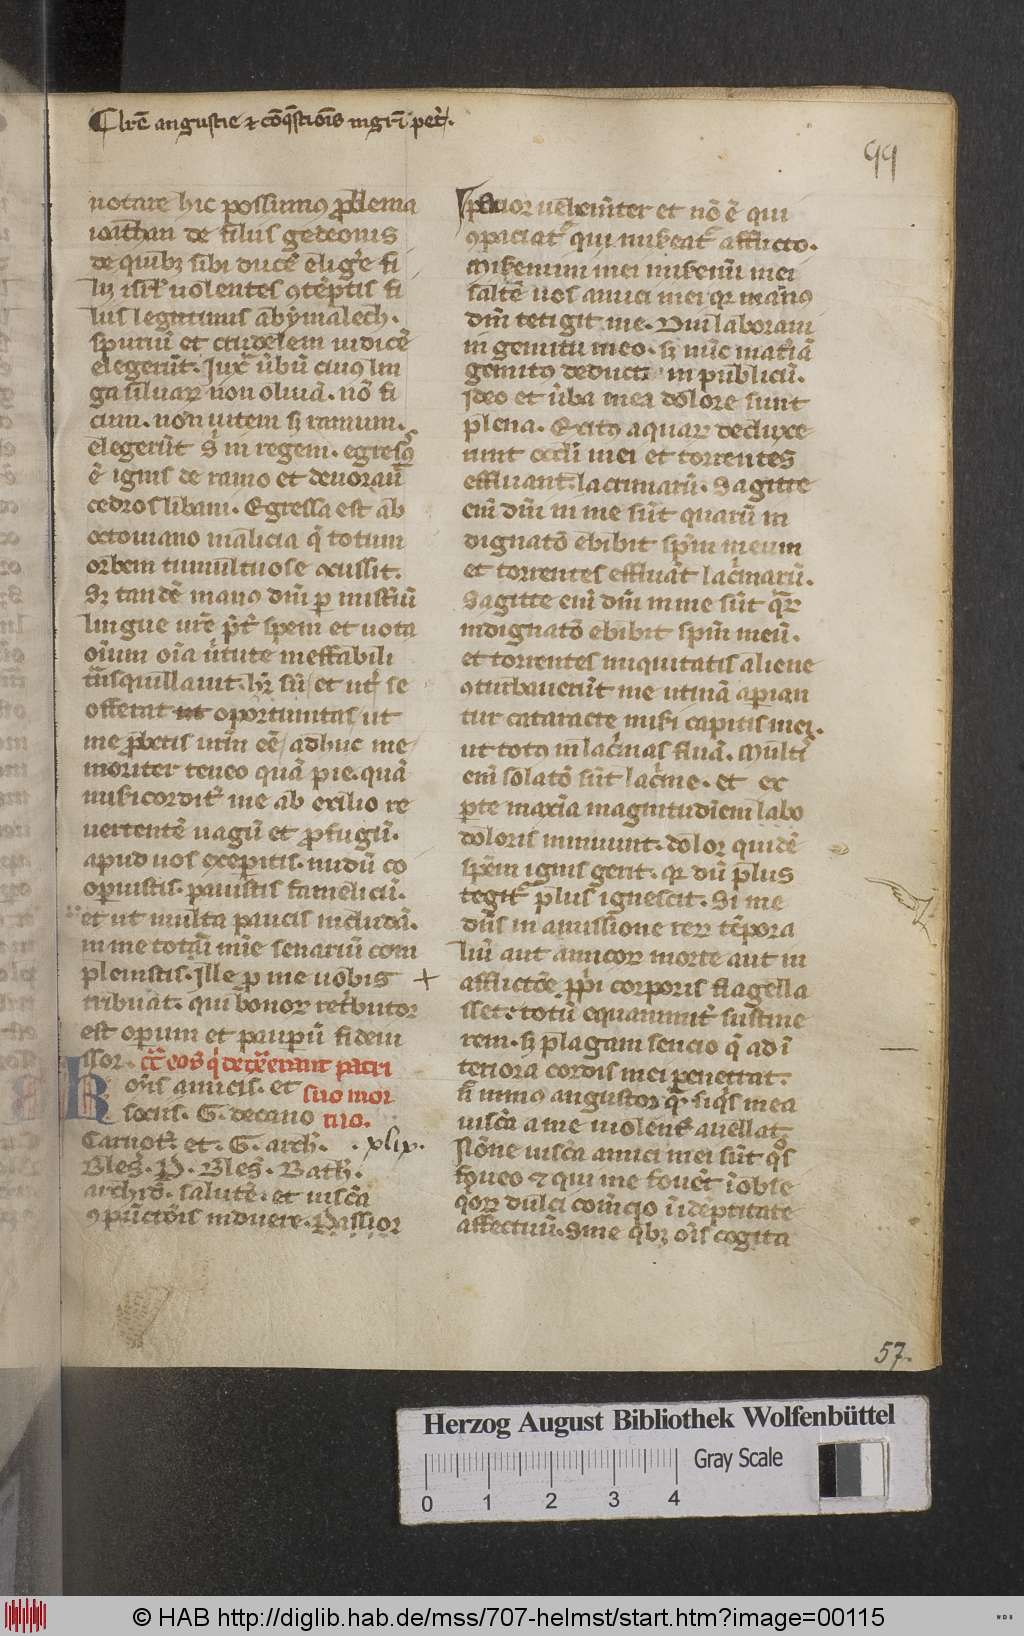 Clr̄e angustie ⁊ cōq̄stiōis nigr̄i pet'.
99
notare hic possumus ꝓblema
ioathan de filiis gedeonis
de quibꝫ sibi ducē elig'e fi
lij isrl' uolentes ꝯtēptis fi
liis legitimis abymalech.
spuriū et crudelem iudicē
elegerūt. Iuxͣ u'bū cuius lin
ga siluaꝝ non oliuā. nō fi
cum. non uitem sꝫ ramum.
elegerūt s' in regem. egressꝰ
ē ignis de ramo et deuorauit
cedros libani. Egressa est ab
octouiano malicia q̄ totum
orbem tumultuose ꝯcussit.
Sꝫ tandē manus dn̄i ꝑ mist'iū
lingue ur̄e pͬt' spem et uota
oīum oīa u'tute ineffabili
tn̄squillauit. hͬ sū et ut' se
offerat ut oportunitas ut
me ꝓbetis urīn eē adhuc me
moriter teneo quā pie. quā
mis'icordit' me ab exilio re
uertentē uagū et ꝓfugū.
apud uos excepitis. nudū co
opuistis. pauistis famelicū.
et ut multa paucis includā.
in me totūi mīe senariū com
pleuistis. Ille ꝓ me uobis
tribuat. qui bonoꝝ retributor
est opum et paupū fideiu
ssor. Cͨ eos q̄ deceserunt patri
R
oīs amicis. et suo mor
socus. G. decano tuo.
Carnot'. et. G. arch'. . xlix.
Bles'. P. Bles'. Bath'.
archid'. salutē. et uisc'a
ꝯpūctiōis induere. Passior
uehem̄ter et nō ē qui
ꝯpaciat' qui mis'eat' afflicto.
Mis'emini mei mis'emi mei
saltē uos amici mei qꝛ manus
dn̄i tetigit me. Diu laboraui
in gemitu meo. sꝫ nūc mat'iā
gemitus deduci in publicū.
Ideo et u'ba mea dolore sunt
plena. Exitus aquaꝝ deduxe
runt oculi mei et torrentes
effluant lacrimarū. Sagitte
eni dn̄i in me sūt quarū in
dignatō ebibit sp̄m meum
et torrentes effluāt lac'marū.
Sagitte enī dn̄i in me sūt qͣꝝ
indignatō ebibit spm̄ meū.
et torrentes iniquitatis aliene
ꝯturbauerūt me utinā aperian
tur cataracte mis'i capitis mei.
ut totus in lac'mas fluā. Multi
enī solatō sūt lac'me. et ex
ꝑte maxīa magnitudinem labo
doloris minuunt. dolor quidē
spēm ignis gerit. qꝛ dū plus
tegit' plus ignescit. Si me
dn̄s in amissione reꝝ tēpora
liū aut amicoꝝ morte aut in
afflictōe ꝓpi corporis flagella
sset. totū equanimit' sustine
rem. sꝫ plagam sencio q̄ ad ī
teriora cordis mei penetrat.
n̄ minus angustor qͣ si qͥs mea
uisc'a a me uiolent' auellat.
Nōne uisc'a amici mei sūt qͦs
foueo ⁊ qui me fouēt ī oble
qoꝝ dulci com̄cio ī idēptitate
affectuū. Sine qͥbꝫ oīs cogita
57.
Herzog August Bibliothek Wolfenbüttel
Gray Scale
0 1 2 3 4
© HAB http://diglib.hab.de/mss/707-helmst/start.htm?image=00115